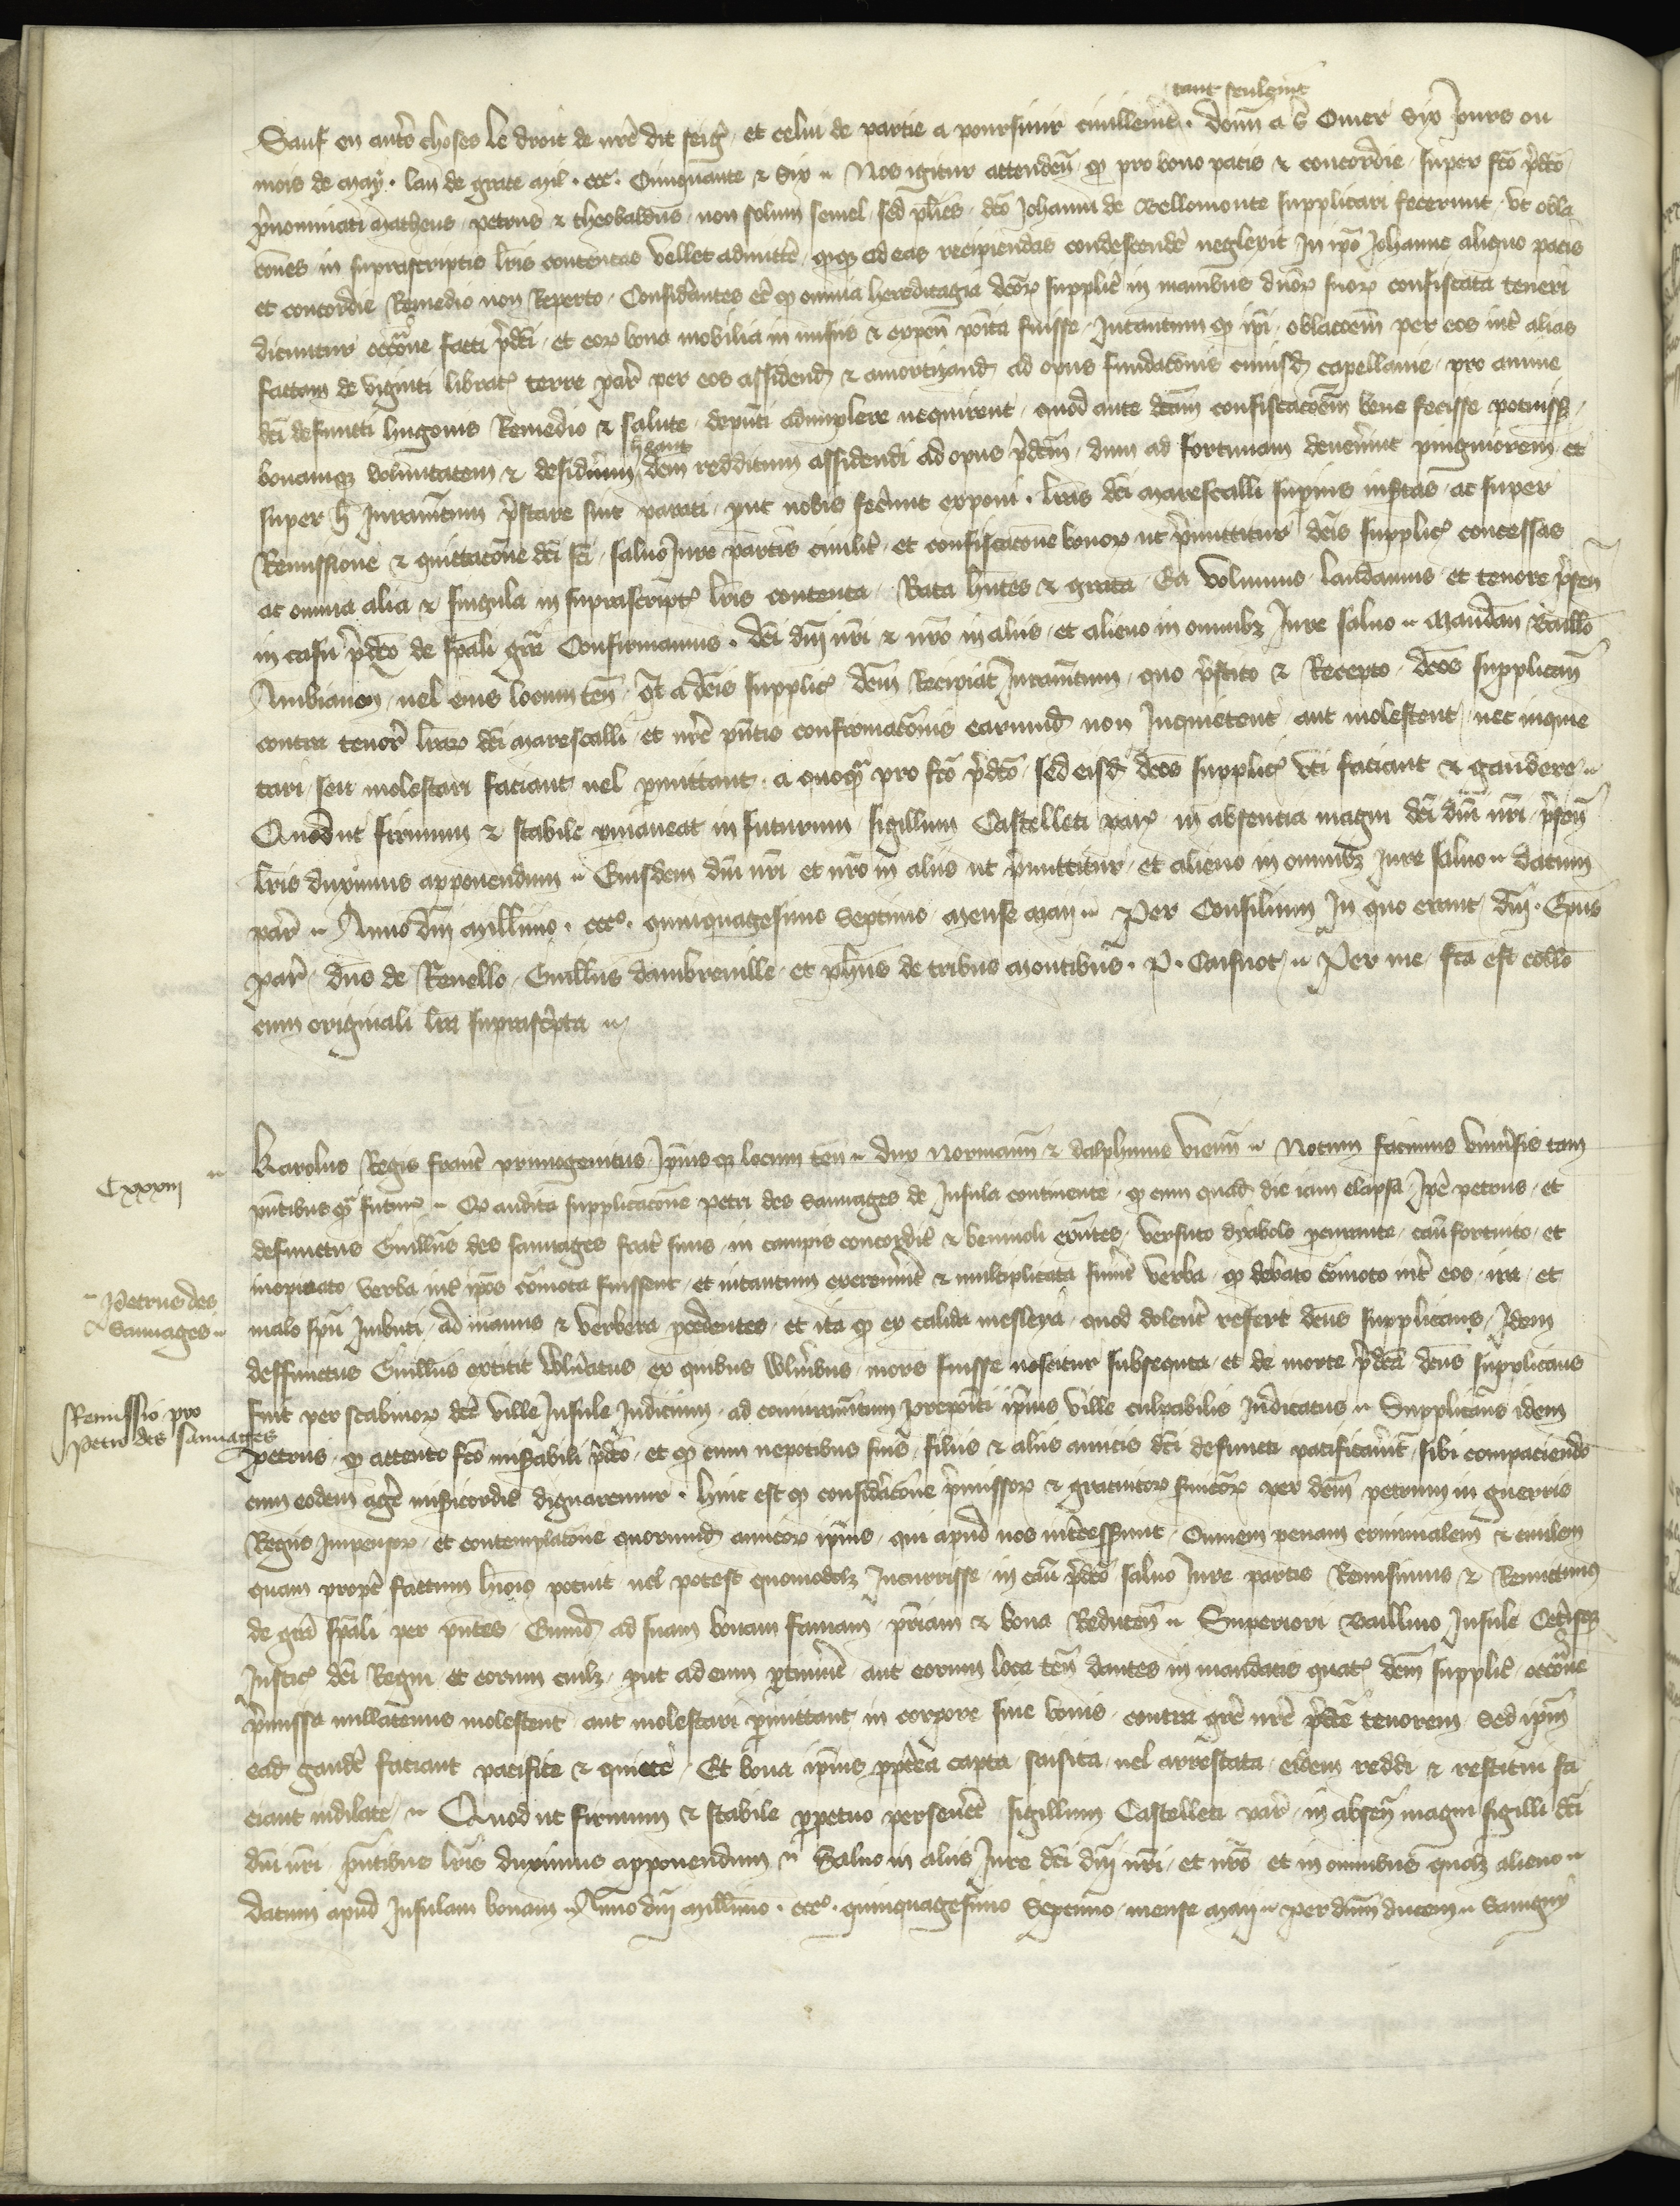 tant seulemt
Sauf en autres choses le droit de nre dit seigr. et celui de partie a poursuir civillemt. Donn a St Omer dix jours ou
mois de may. lan de grace mil. ccc. Cinquante & six. Nos igitur attenden qd pro bono pacis & concordie super fco pdco
pnominati Matheus petrus & theobaldus non solum semel sed plies dco Johanni de Bellomonte supplicari fecerunt ut obla
cones in suprascriptis lris contentas vellet admitte quiqz ad eas recipiendas condescende neglexit In ipo Johanne aliquo pacis
et concordie Remedio non Reperto. Considantes ec qd omnia hereditagia dcor supplic in manibus dnor suor confiscata teneri
dicuntur occone facti pdci et eor bona mobilia in misiis & expen poita fuisse. Intantum qd ipi oblacoem per eos int alias
factam de viginti librat terre par per eos assidend & amortizand ad opus fundacois cuiusd capellanie pro anime
dci defuncti hugonis Remedio & salute depnti adimplere nequirent quod ante dcam confiscacoem bene fecisse potuisst
heant
bonamqz voluntatem & desidium dcm redditum assidendi ad opus pdcm dum ad fortunam devenint pinguiorem et
super h Juramtum pstare sint parati put nobis fecunt exponi. lras dci marescalli supius insertas ac super
Remissione & quittacone dci fci salvo Jure partis civilit et confiscacone bonor ut pmittitur dcis supplic concessas
ac omnia alia & singula in suprascript lris contenta Rata hntes & grata Ea volumus laudamus et tenore psen
in casu pdco de spali gra Confirmamus. dci dni nri & nro in aliis et alieno in omnibz Jure salvo. Mandan baillo
Ambianen vel eius locum ten qt a dcis supplic dcm Recipiat Juramtum quo pstito & Recepto dcos supplican
contra tenore lrar dci marescalli et nre pntis confirmacois earumd non Inquietent aut molestent nec inquie
tari seu molestari faciant vel pmittant a quoqz pro fco pdco sed eisd dcos supplic uti faciant & gaudere
Quod ut firmum & stabile pmaneat in futurum sigillum Castelleti par in absentia magni dci dni nri psen
lris duximus apponendum. Eiusdem dni nri et nro in aliis ut pmittitur et alieno in omnibz Jure salvo. Datum
par. Anno dni millimo. ccco. quinquagesimo septimo mense maii. Per Consilium In quo erant dni. Epus
par dns de Revello Guillus dambreville et phus de tribus montibus. P. Caisnot. Per me fca est collo
cum originali lra suprascpta
Cxxxiii
Karolus Regis franc primogenitus Ipiusqz locum ten dux normann & dalphinus vienn. Notum facimus universis tam
pntibus qz futuris. Qd audita supplicacone petri des Sauvages de Insula continente qd cum quad die iam elapsa Ipe petrus et
defunctus Guillus des sauvages frat suus in campis concordit & benivoli exntes versuto dyabolo pcurante casu fortuito et
Petrus des
Sauvages
inopinato verba int ipos comota fuissent et intantum excrevint & multiplicata fuint verba qd debato comoto int eos ira et
malo spu Imbuti ad manus & verbera pcedentes et ita qd ex calida mesleya quod dolent refert dcus supplicans Idem
deffunctus Guillus extitit vulnatus ex quibus vulnibus mors fuisse noscitur subsequta et de morte pdca dcus supplicans
Remissio pro
Petro des sauvages
fuit per scabinor dce ville Insule Judicium ad conuramtum prepoiti ipius ville culpabilis Judicatus. Supplicans idem
petrus qd attento fco misabili pdco et qd cum nepotibus suis filiis & aliis amicis dci defuncti pacificavit sibi compaciendo
cum eodem age misicordit dignaremur. Hinc est qd considacone pmissor & gratuitor suicor per dcm petrum in guerris
Regiis Impensor et contemplacone quorumd amicor ipius qui apud nos intcesserunt Omnem penam criminalem & civilem
quam propt factum huiois potuit vel potest quomodolz Incurrisse in casu pdco salvo Jure partis Remisimus & Remittimus
de gra spali per pntes Eumd ad suam bonam famam priam & bona Reducen. Superiori baillivo Insule Cetisqz
Justic dci Regni et eorum cuilz put ad eum ptinuit aut eorum loca ten dantes in mandatis quat dcm supplic occone
pmissa nullatenus molestent aut molestari pmittant in corpore sive bonis contra gre nre pdce tenorem sed ipm
ead gaude faciant pacifice & quiete Et bona ipius pptea capta saisita vel arrestata eidem reddi & restitui fa
ciant indilate. Quod ut firmum & stabile ppetuo perseveret sigillum Castelleti par in absen magni sigilli dci
dni nri pntibus lris duximus apponendum. Salvo in aliis Jure dci dni nri et nro et in omnibus qualz alieno
datum apud Insulam bonam. Anno dni millimo. ccco. quinquagesimo Septimo mense maii. per dnm ducem. Savigny